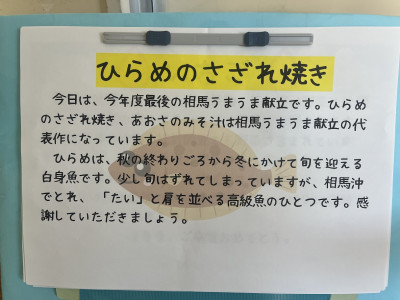 ひらめのさざれ焼き
今日は、今年度最後の相馬うまうま献立です。ひらめ
のさざれ焼き、あおさのみそ汁は相馬うまうま献立の代
表作になっています。
ひらめは、秋の終わりごろから冬にかけて旬を迎える
白身魚です。少し旬はずれてしまっていますが、相馬沖
でとれ、「たい」と肩を並べる高級魚のひとつです。感
謝していただきましょう。